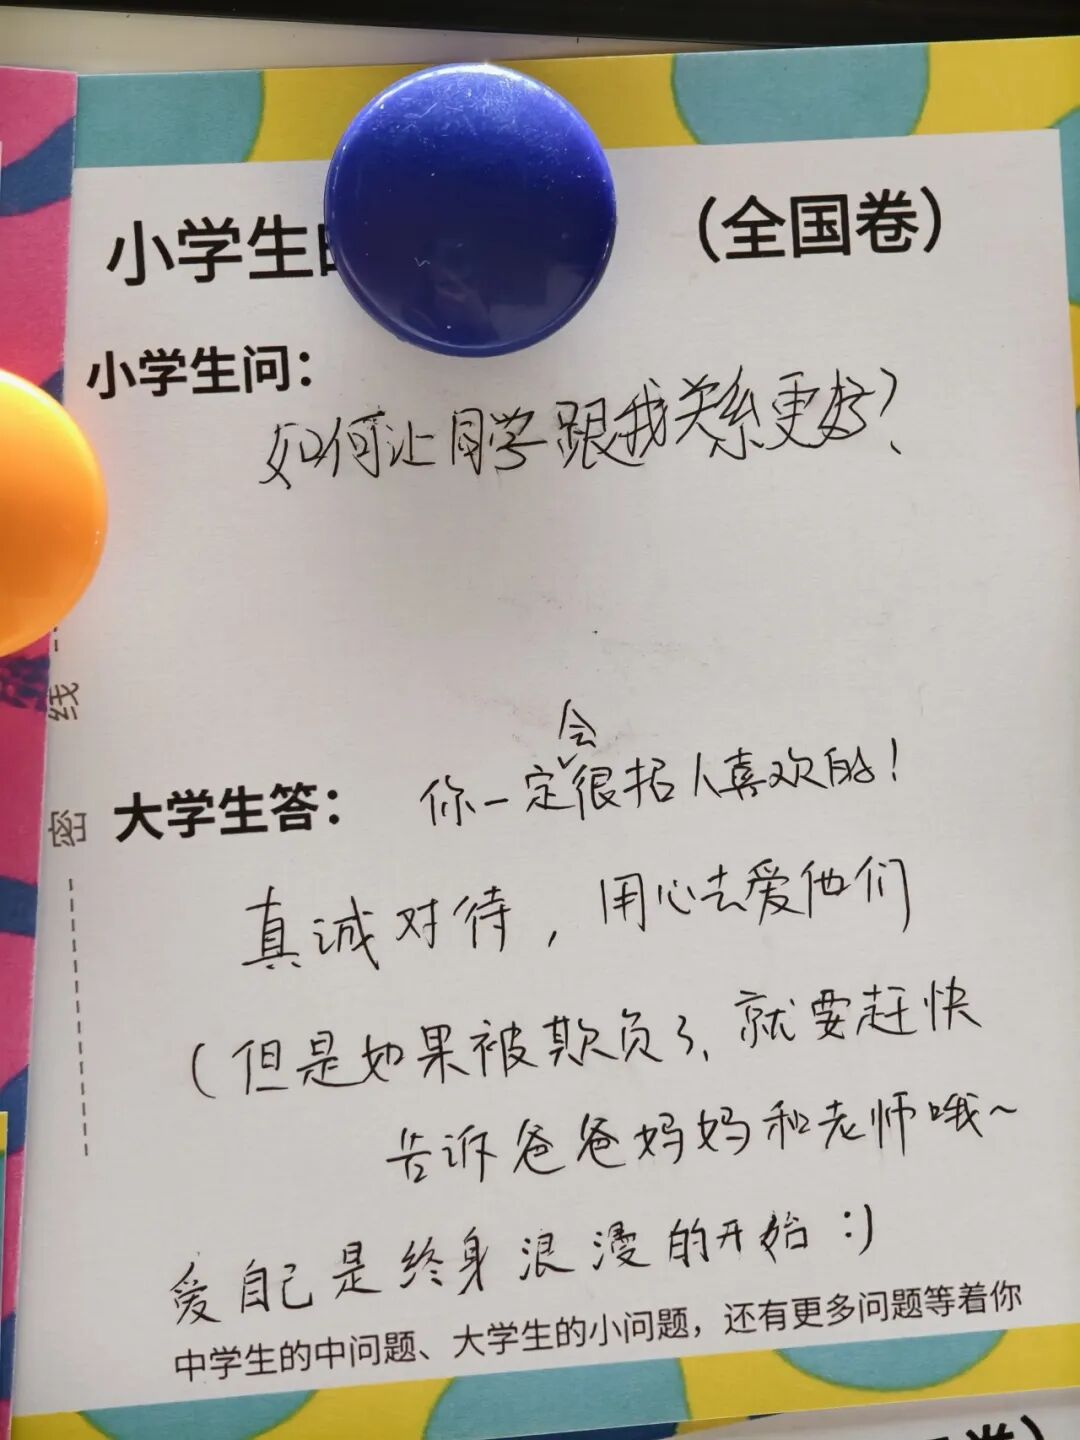 小学生
（全国卷）
小学生问：
如何让同学跟我关系更好？
大学生答：
你一定会很招人喜欢的！
真诚对待，用心去爱他们
（但是如果被欺负了、就要赶快
告诉爸爸妈妈和老师哦~
爱自己是终身浪漫的开始 :)
中学生的中问题、大学生的小问题，还有更多问题等着你
密 线